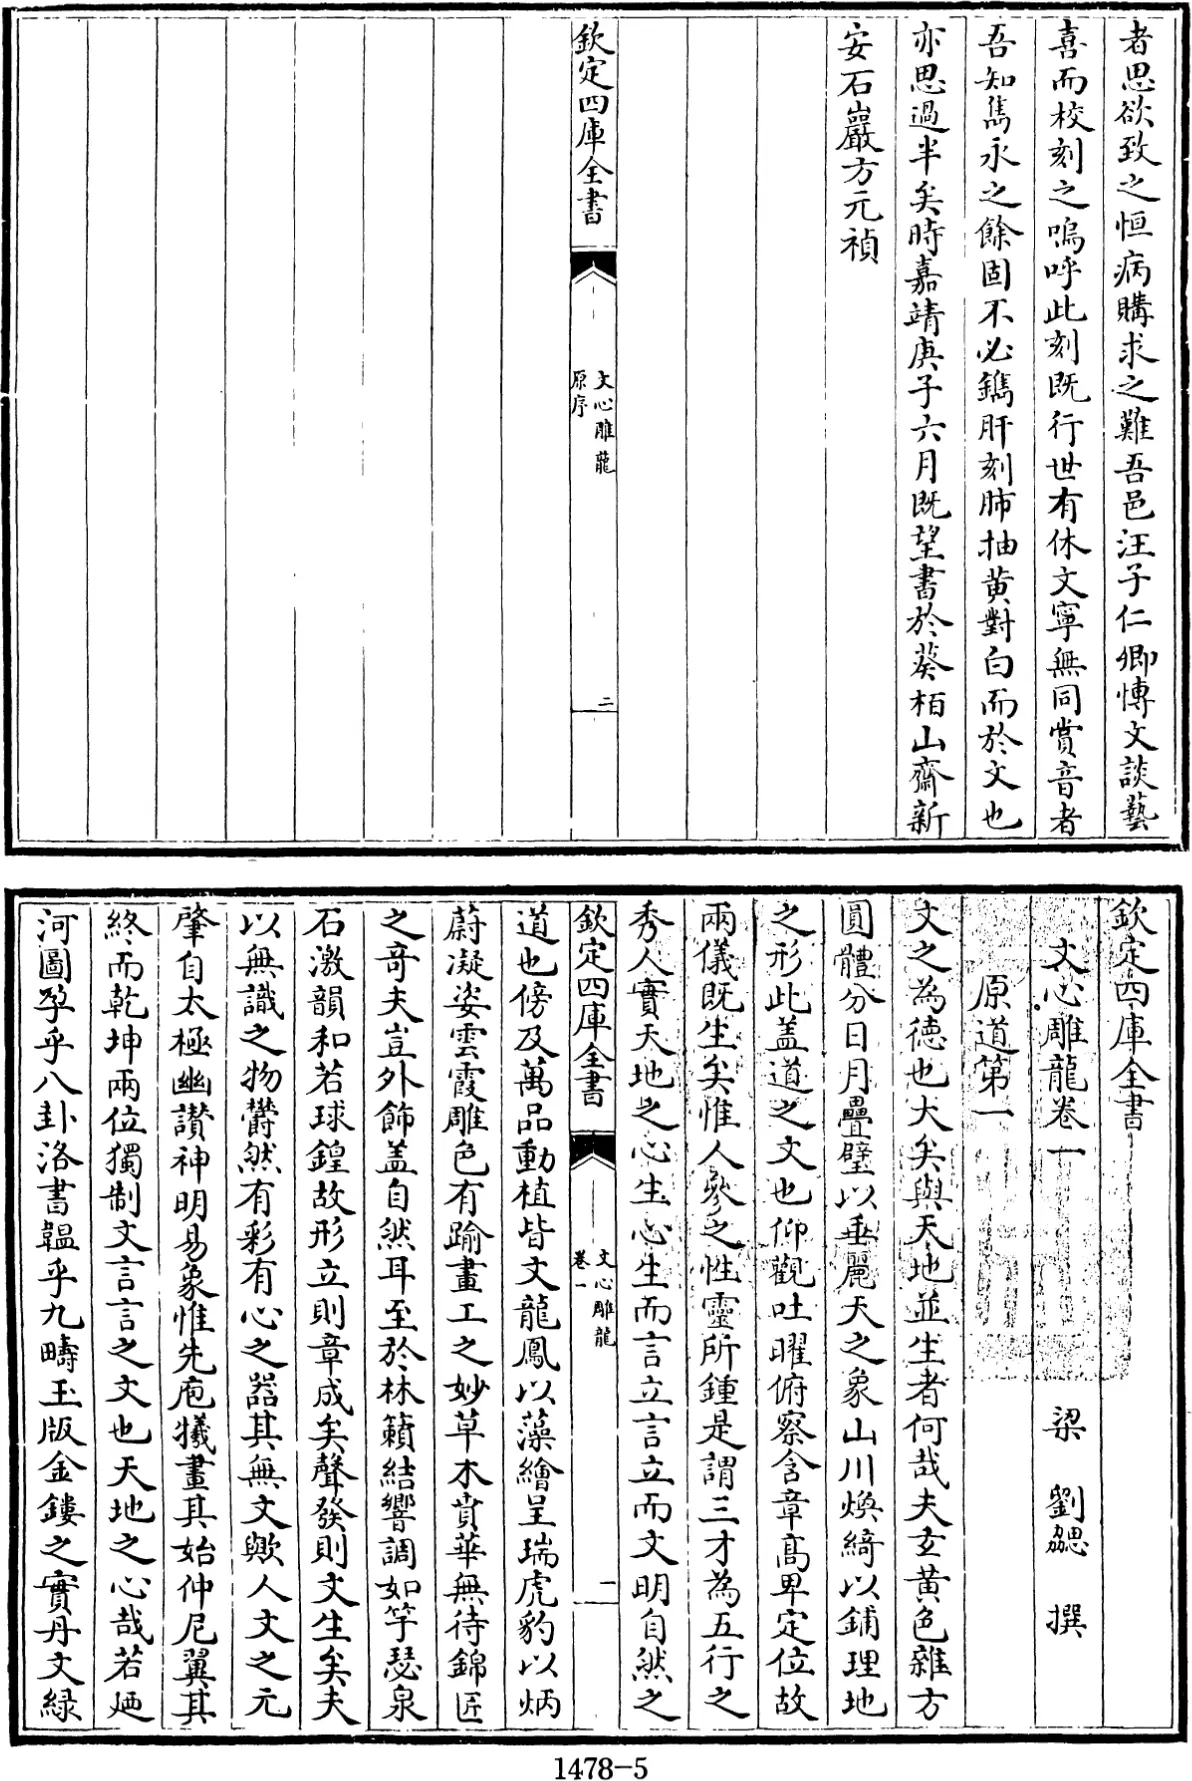 者思欲致之恒病購求之難吾邑汪子仁卿慱文談藝
喜而校刻之嗚呼此刻既行世有休文寧無同賞音者
吾知雋永之餘固不必鐫肝刻肺抽黄對白而於文也
亦思過半矣時嘉靖庚子六月既望書於葵栢山齋新
安石巖方元禎
欽定四庫全書
文心雕龍
原序
二
欽定四庫全書
文心雕龍卷一
梁 劉勰 撰
原道第一
文之為徳也大矣與天地並生者何哉夫玄黄色雜方
圓體分日月疊璧以垂麗天之象山川煥綺以鋪理地
之形此盖道之文也仰觀吐曜俯察含章高卑定位故
兩儀既生矣惟人參之性靈所鍾是謂三才為五行之
秀人實天地之心生心生而言立言立而文明自然之
欽定四庫全書
文心雕龍
卷一
一
道也傍及萬品動植皆文龍鳳以藻繪呈瑞虎豹以炳
蔚凝姿雲霞雕色有踰畫工之妙草木賁華無待錦匠
之奇夫豈外飾盖自然耳至於林籟結響調如竽瑟泉
石激韻和若球鍠故形立則章成矣聲發則文生矣夫
以無識之物欝然有彩有心之器其無文歟人文之元
肇自太極幽讃神明易象惟先庖犧畫其始仲尼翼其
終而乾坤兩位獨制文言言之文也天地之心哉若廼
河圖孕乎八卦洛書韞乎九疇玉版金鏤之實丹文緑
1478-5